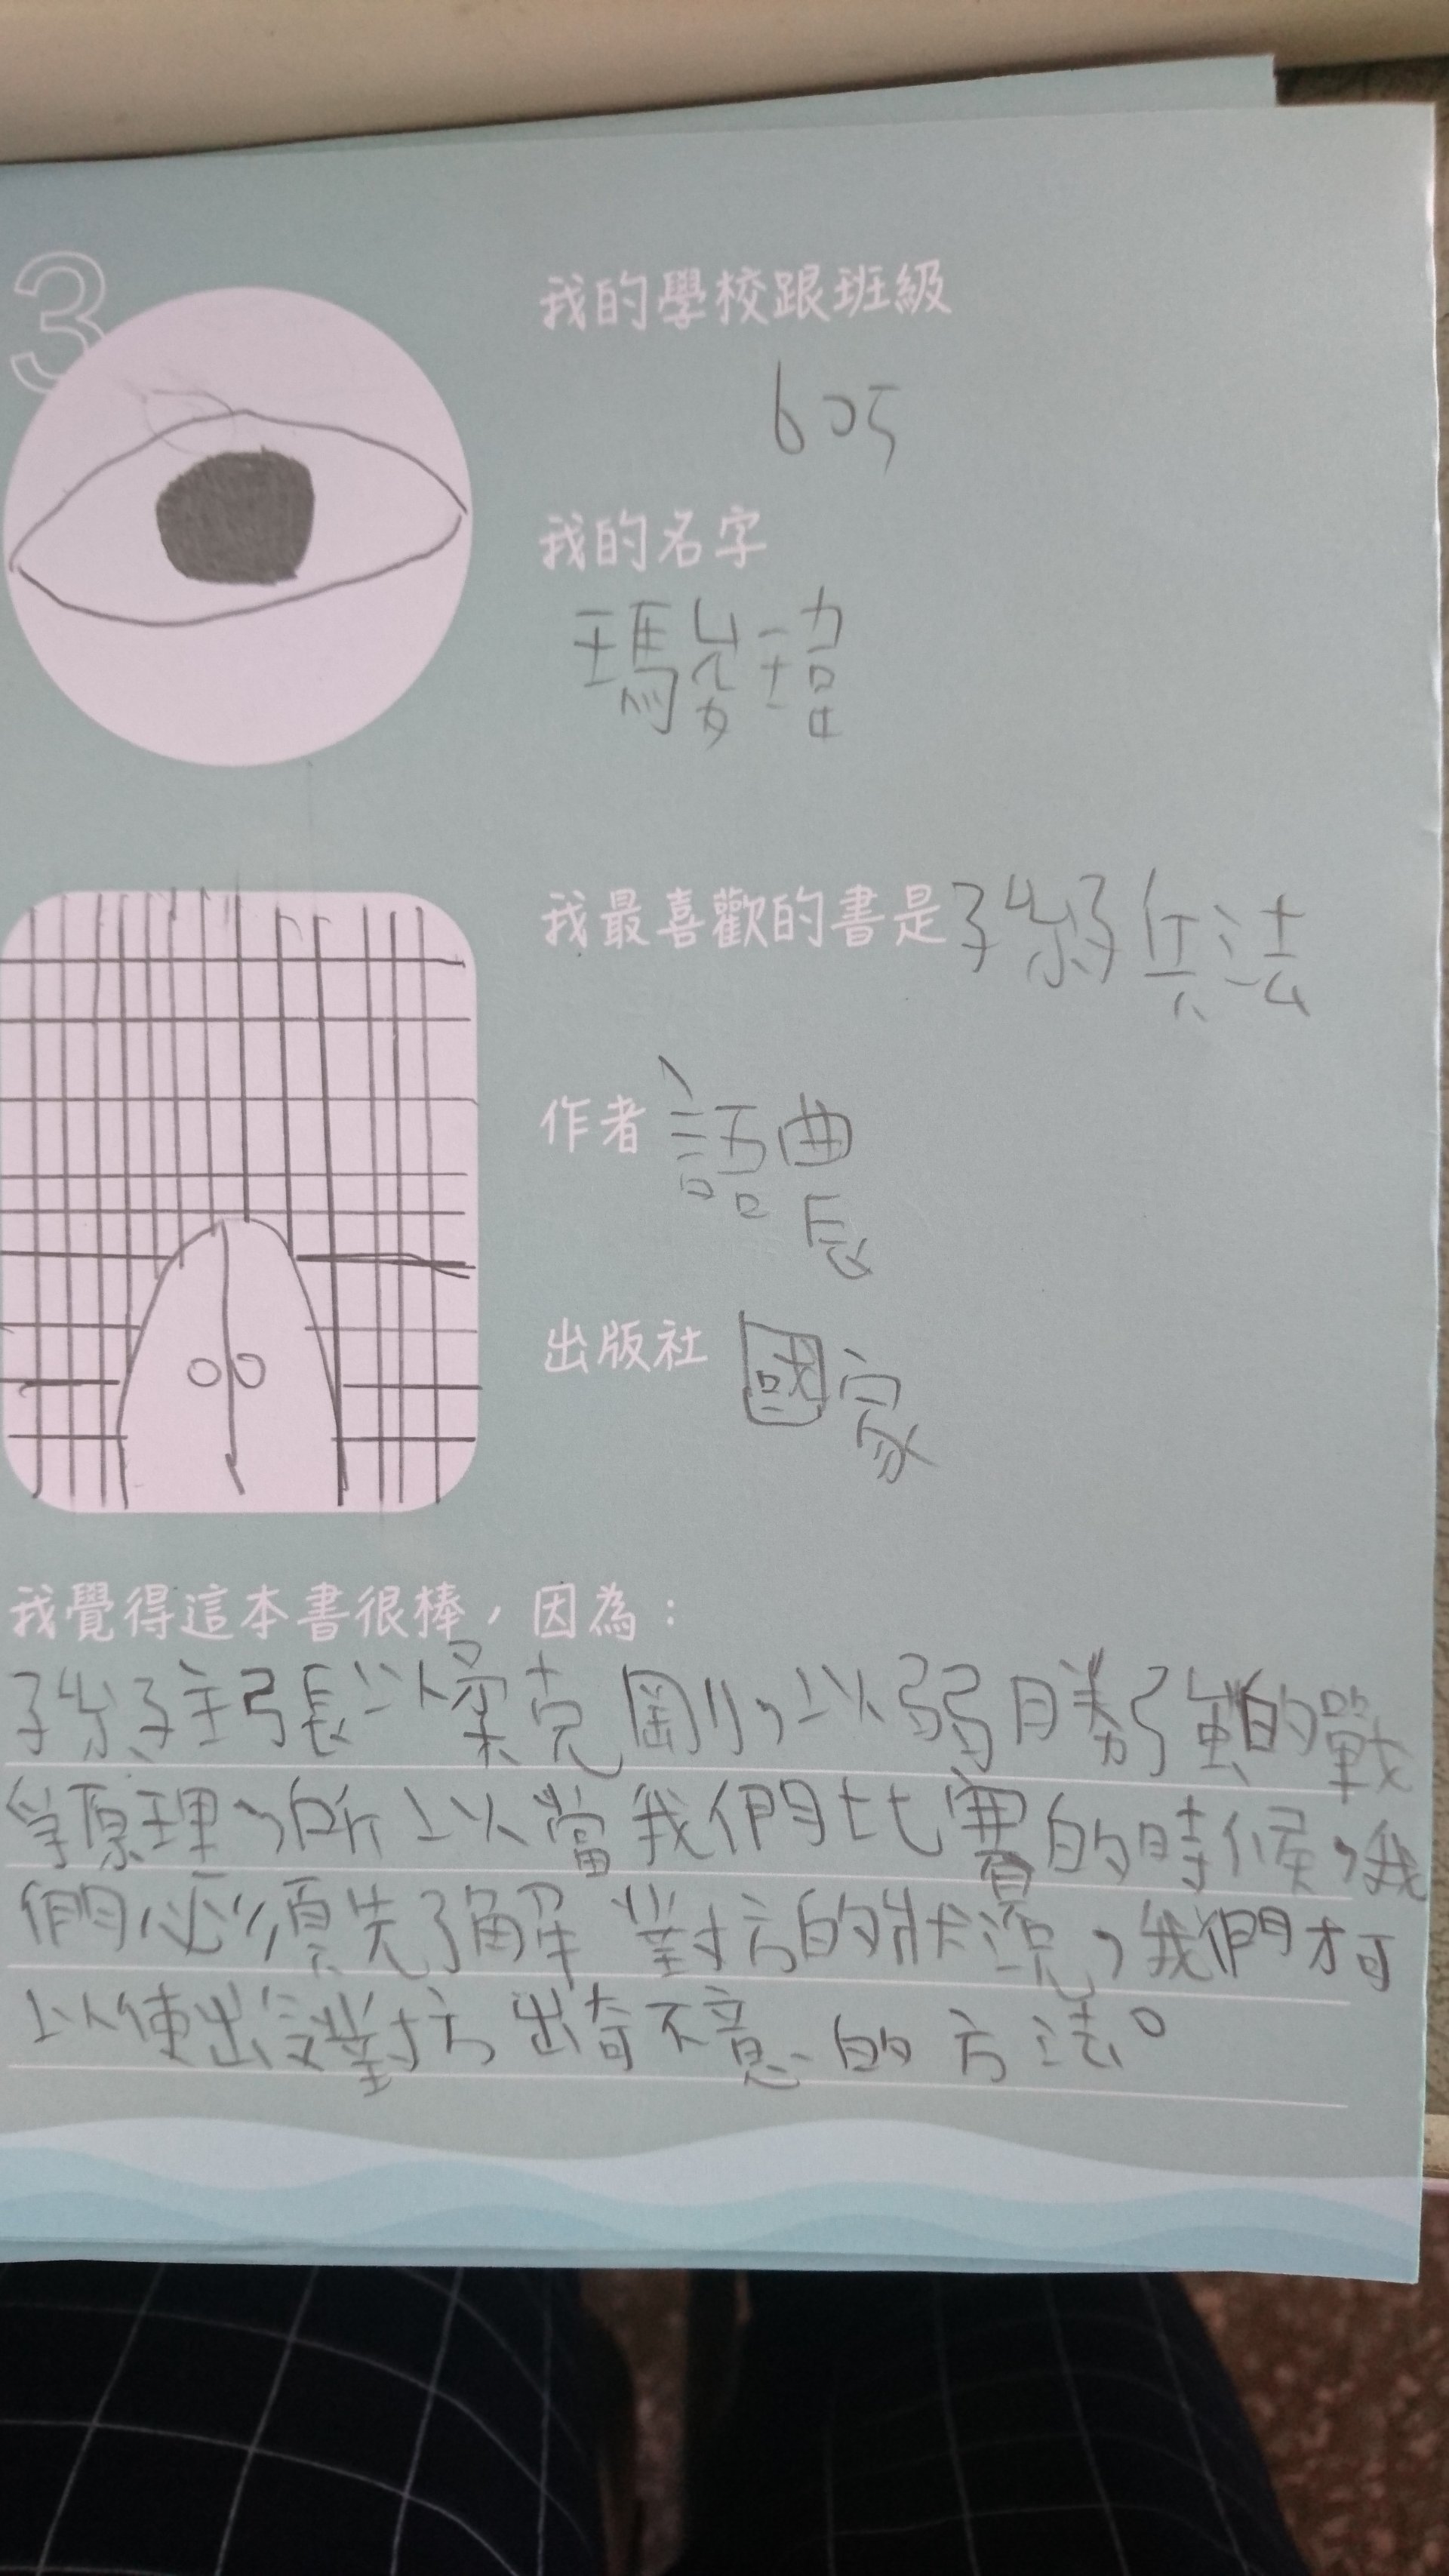 3
我的學校跟班級
605
我的名字
瑪
我最喜歡的書是孫子兵法
作者 語
出版社 國家
我覺得這本書很棒，因為：
孫子主張以柔克剛，以弱勝強的戰
爭原理，所以當我們比賽的時候，我
們必須先了解對方的狀況，我們才可
以使出讓對方出奇不意的方法。